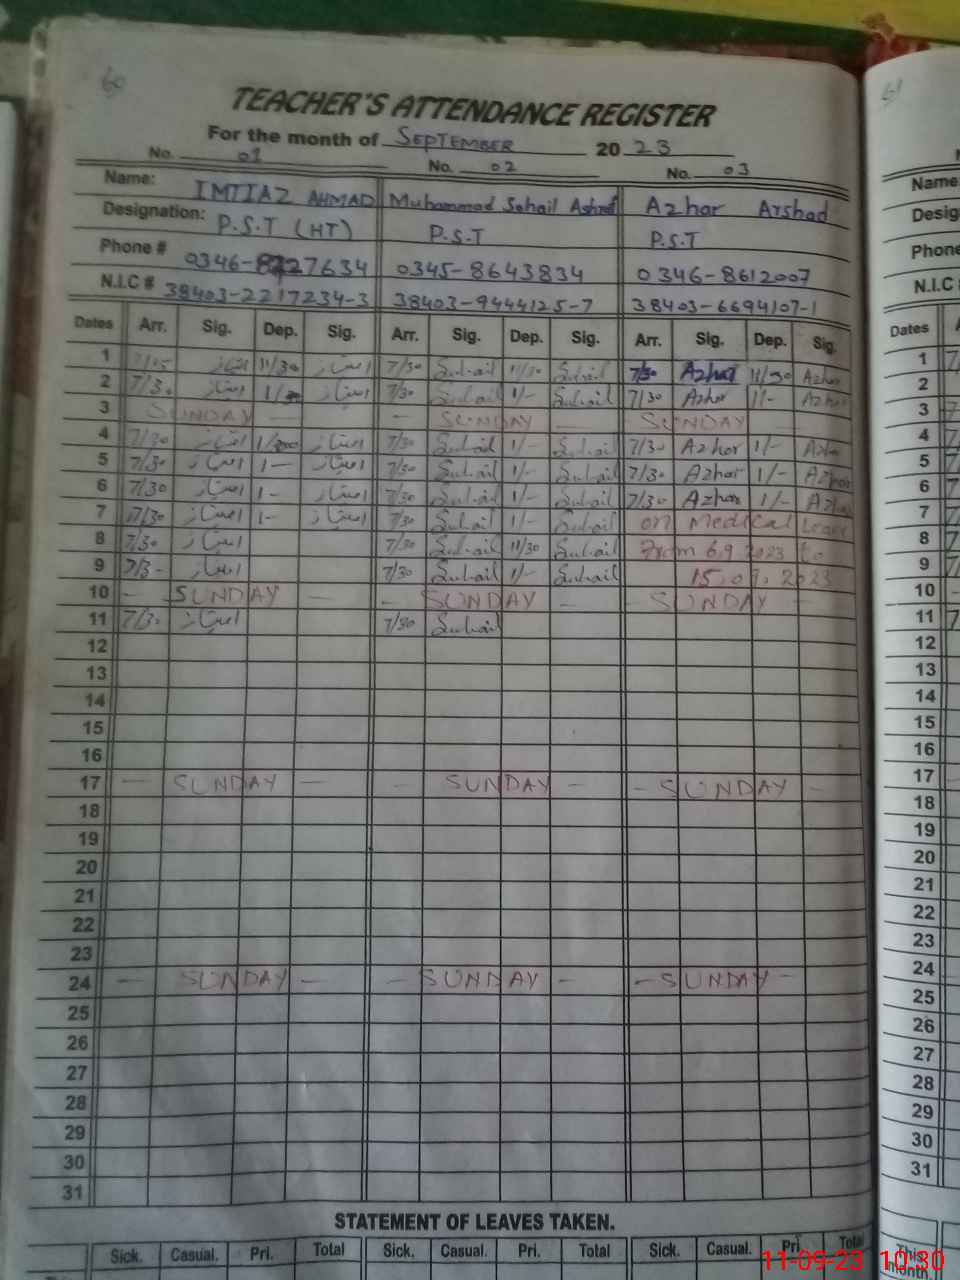 60
61
TEACHER'S ATTENDANCE REGISTER
For the month of SEPTEMBER 2023
No. 01 No. 02 No. 03
Name: IMTIAZ AHMAD Muhammad Sohail Ashraf Azhar Arshad
Name
Designation: P.S.T (HT) P.S.T P.S.T
Desig
Phone # 0346-8727634 0345-8643834 0346-8612007
Phone
N.I.C # 38403-2217234-3 38403-9444125-7 38403-6694107-1
N.I.C
Dates Arr. Sig. Dep. Sig. Arr. Sig. Dep. Sig. Arr. Sig. Dep. Sig. Dates
1 امتیاز 11/30 امتیاز 7/30 Suhail 11/30 Suhail 7/30 Azhar 11/30 Azhar 1
2 7/30 امتیاز امتیاز 7/30 Suhail 1/- Suhail 7/30 Azhar 1/- Azhar 2
3 SUNDAY — - SUNDAY — - SUNDAY - 3
4 7/30 امتیاز امتیاز 7/30 Suhail 1/- Suhail 7/30 Azhar 1/- Azhar 4
5 7/30 امتیاز 1- امتیاز 7/30 Suhail 1/- Suhail 7/30 Azhar 1/- Azhar 5
6 7/30 امتیاز 1- امتیاز 7/30 Suhail 1/- Suhail 7/30 Azhar 1/- Azhar 6
7 7/30 امتیاز 1- امتیاز 7/30 Suhail 1/- Suhail on Medical Leave 7
8 7/30 امتیاز 7/30 Suhail 11/30 Suhail From 6.9.2023 to 8
9 7/3- امتیاز 7/30 Suhail 1/- Suhail 15.09.2023 9
10 — SUNDAY — - SUNDAY - - SUNDAY - 10
11 7/30 امتیاز 7/30 Suhail 11
12 12
13 13
14 14
15 15
16 16
17 — SUNDAY — - SUNDAY - - SUNDAY - 17
18 18
19 19
20 20
21 21
22 22
23 23
24 — SUNDAY — - SUNDAY - - SUNDAY - 24
25 25
26 26
27 27
28 28
29 29
30 30
31 31
STATEMENT OF LEAVES TAKEN.
Sick. Casual. Pri. Total Sick. Casual. Pri. Total Sick. Casual. Pri. Total
This month
11-09-23 10:30